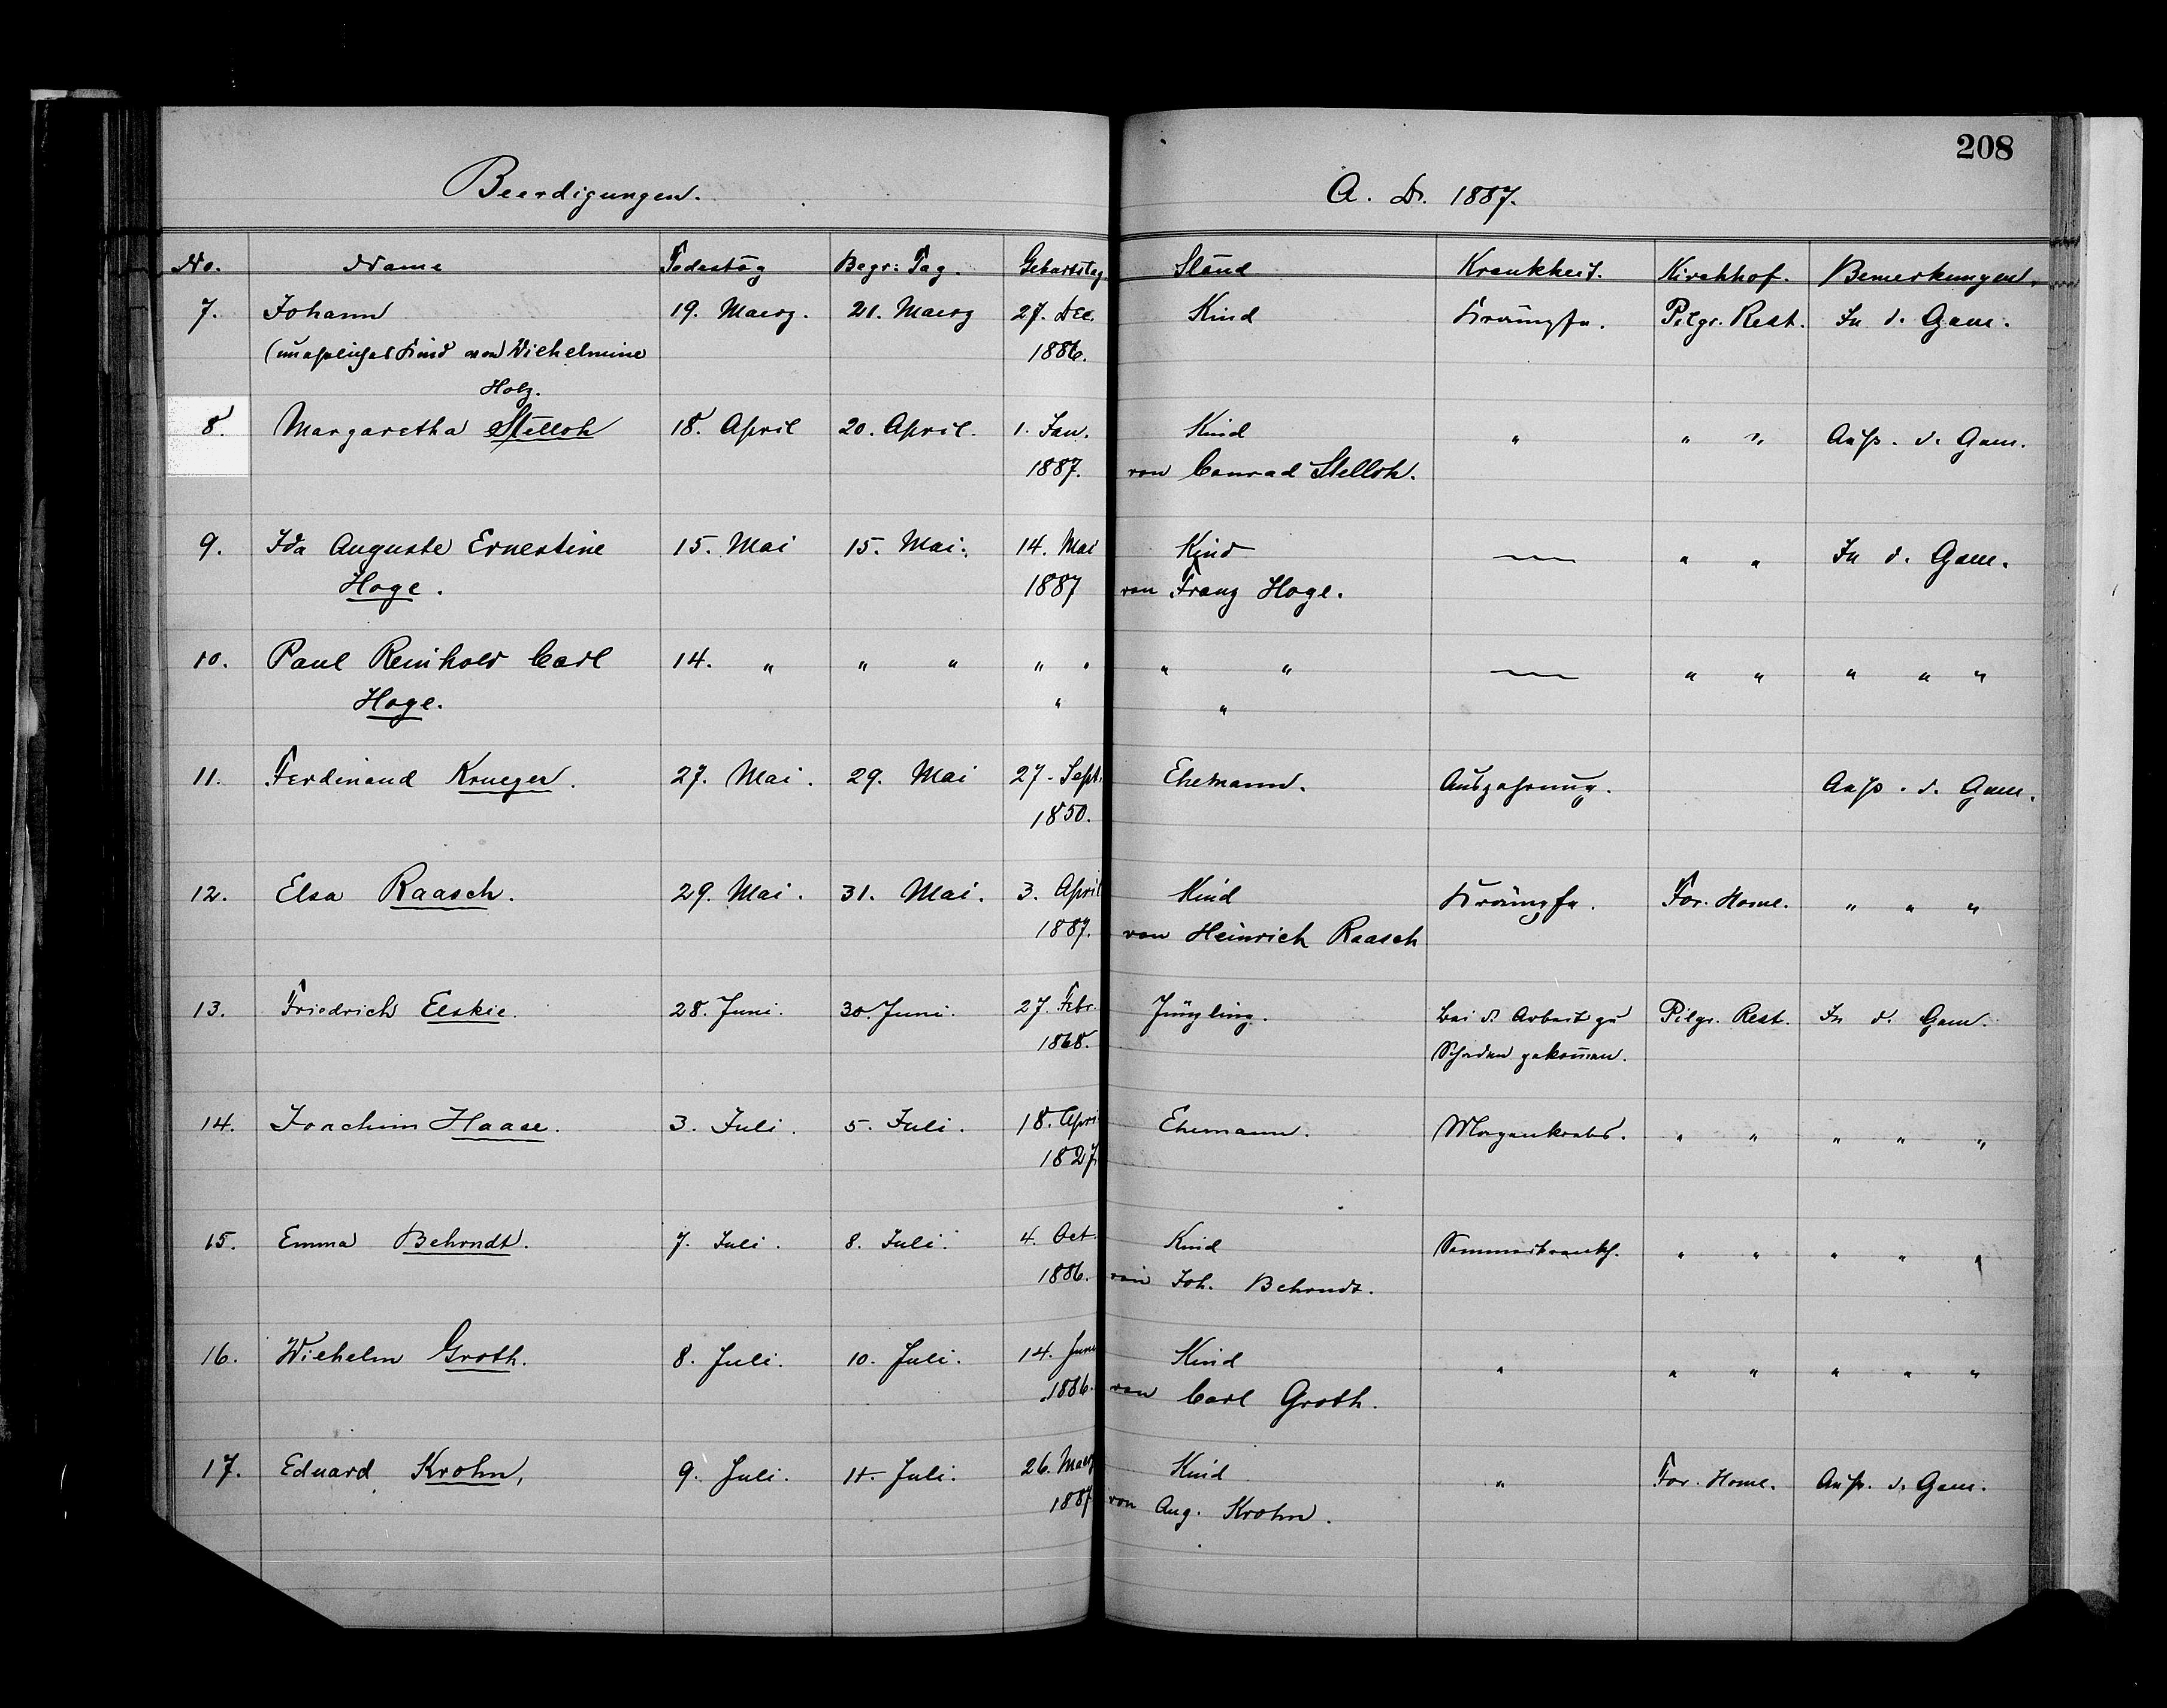 208
Beerdigungen. A. D. 1887.
No. Name Todestag Begr: Tag. Geburtstag. Stand Krankheit. Kirchhof. Bemerkungen.
7. Johann 19. Maerz. 21. Maerz 27. Dec. Kind Krämpfe. Pilgr. Rest. In d. Gem.
(unehliches Kind von Wilhelmine 1886.
Holz.
8. Margaretha Stelloh 18. April 20. April. 1. Jan. Kind " " " Auß. d. Gem.
1887. von Conrad Stelloh.
9. Ida Auguste Ernestine 15. Mai 15. Mai. 14. Mai Kind — " " In d. Gem.
Hoge. 1887 von Franz Hoge.
10. Paul Reinhold Carl 14. " " " " " " " — " " " " "
Hoge. " "
11. Ferdinand Krueger. 27. Mai. 29. Mai 27. Sept. Ehemann. Auszehrung. Auß. d. Gem.
1850.
12. Elsa Raasch. 29. Mai. 31. Mai. 3. April Kind Krämpfe. For. Home. " " "
1887. von Heinrich Raasch
13. Friedrich Elskie. 28. Juni. 30. Juni. 27. Febr. Jüngling. Bei d. Arbeit zu Pilgr. Rest. In d. Gem.
1868. Schaden gekom̄en.
14. Joachim Haase. 3. Juli. 5. Juli. 18. Apri Ehemann. Magenkrebs. " " " " "
1827
15. Emma Behrndt. 7. Juli. 8. Juli. 4. Oct. Kind Sommerkrankh. " " " " "
1886. von Joh. Behrndt.
16. Wilhelm Groth. 8. Juli. 10. Juli. 14. Juni Kind " " " " " "
1886. von Carl Groth.
17. Eduard Krohn, 9. Juli. 11. Juli. 26. Maerz Kind " For. Home. Auß. d. Gem.
1887 von Aug. Krohn.